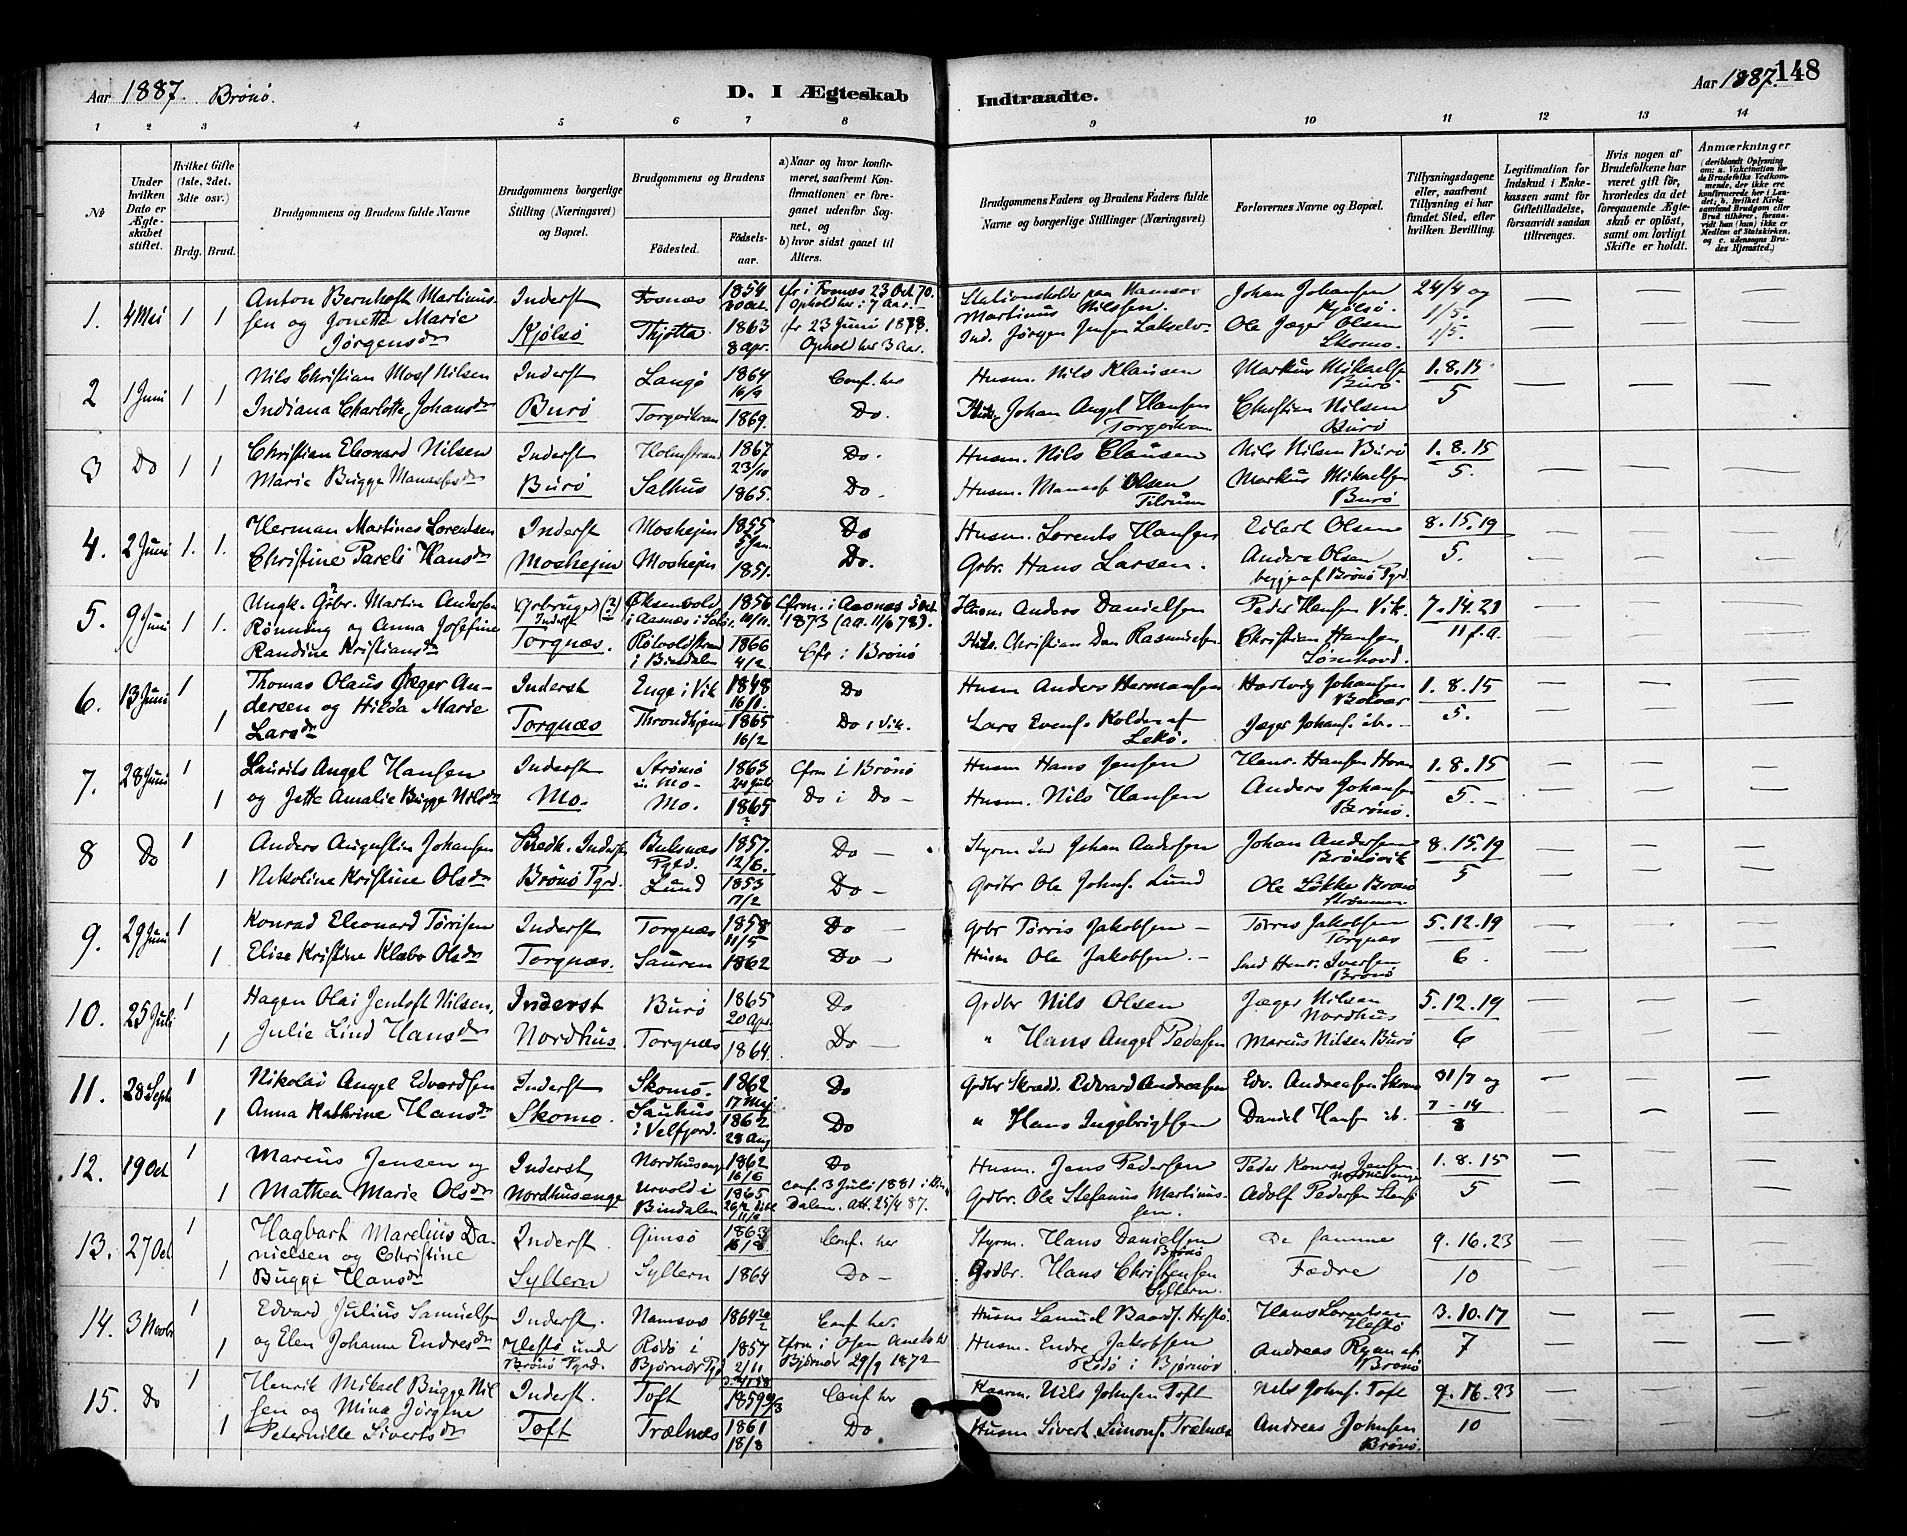 Aar 1887. Brönö.
D. I Ægteskab Indtraadte.
Aar 1887. 148
1 2 3 4 5 6 7 8 9 10 11 12 13 14
No
Under hvilken Dato er Ægteskabet stiftet.
Hvilket Gifte (1ste, 2det, 3die osv.)
Brdg. Brud.
Brudgommens og Brudens fulde Navne
Brudgommens borgerlige Stilling (Næringsvei) og Bopæl.
Brudgommens og Brudens
Födested.
Födselsaar.
a) Naar og hvor konfirmeret, saafremt Konfirmationen er foregaaet udenfor Sognet, og
b) hvor sidst gaaet til Alters.
Brudgommens Faders og Brudens Faders fulde Navne og borgerlige Stillinger (Næringsvei)
Forlovernes Navne og Bopæl.
Tillysningsdagene eller, saafremt Tillysning ei har fundet Sted, efter hvilken Bevilling.
Legitimation for Indskud i Enkekassen samt for Giftetilladelse, forsaavidt saadan tiltrænges.
Hvis nogen af Brudefolkene har været gift för, hvorledes da det foregaaende Ægteskab er oplöst, samt om lovligt Skifte er holdt.
Anmærkninger
(deriblandt Oplysning om: a. Vakcination for de Brudefolks Vedkommende, der ikke ere konfirmerede her i Landet; b. hvilket Kirkesamfund Brudgom eller Brud tilhörer, forsaavidt han (hun) ikke er Medlem af Statskirken, og c. udensogns Brudes Hjemsted.)
1. 4 Mai 1 1 Anton Bernhoft Martinussen og Jonetta Marie Jørgensdr
Inderst Kjölsö
Fosnæs 1854 30 Oct. cfr i Fosnæs 23 Oct 70. Ophold her i 7 Aar.
Thjøtta. 1863 8 apr. cfr 23 Juni 1878. Ophold her 3 Aar.
Stationsholder paa Namsos Martinus Nilssen.
Ind. Jørgen Jensen
Johan Johansen Kjölsö.
Ole Jæger Olsen Skomo.
24/4 og 1/5.
1/5.
2 1 Juni 1 1 Nils Christian Nilsen
Indiana Charlotte Johansdr
Inderst Burö
Langö 1864 16/9 Conf. her
Torgvikran 1869. Do.
Husm. Nils Klausen
Johan Angel Hansen Torgvikran
Markus Mikaelsen Burö
Christian Nilsen Burö
1.8.15
5
3 Do 1 1 Christian Eleonard Nilsen
Marie Bugge Manassesdr
Inderst Burö
Holmstrand 1867 23/10 Do.
Salhus 1865. Do.
Husm. Nils Clausen
Husm. Manass Olsen Tilrum
Nils Nilsen Burö
Markus Mikaelsen Burö
1.8.15
5.
4. 2 Juni 1. 1. Herman Martines Lorentsen
Christine Pareli Hansdr
Inderst Moshejm
Moshejm 1855 5 Jan. Do
Moshejm 1851. Do.
Husm. Lorents Hansen
Grbr. Hans Larsen.
Eilert Olsen
Anders Olsen
begge af Brönö Pgrd.
8.15.19
5.
5. 9 Juni 1 1. Ungk. Gbr. Martin Andersen Rönning og Anna Josefine Randine Kristiansdr
Inderst Torgnæs.
1856 10/11. Cfrm. i Aasnæs 5 Oct 1873 (aa. 11/6 78).
i Bindalen 1866 4/2 Cfr i Brönö
Husm Anders Danielsen
Christian Dan Rasmussen
Peder Hansen Vik.
Christian Hansen
7.14.21
11 f.a.
6. 13 Juni 1 1 Thomas Olaus Jæger Andersen og Hilda Marie Larsdr
Inderst Torgnæs
Enge i Vik 1848 16/11. Do
Throndhjem 1865 16/2 Do i Vik.
Husm Anders Hermansen
Lars Evens. Kolden af Lekö.
Hartvig Johansen Bolvær
Jæger Johans. ib.
1.8.15
5.
7. 28 Juni 1 1 Laurits Angel Hansen
og Jette Amalie Bugge Nilsdr
Inderst Mo.
Strömö u. Mo. 1863 24 Juli Cfrm i Brönö
Mo. 1865 ? Do i Do
Husm Hans Jensen
Husm. Nils Hansen
Hans Hansen
Anders Johansen Brönö.
1.8.15
5.
8 Do 1 1 Anders Augustin Johansen
Nikoline Kristine Olsdr
Inderst Brönö Pgrd.
Bulsnæs Pgrd. 1857. 12/6. Do
Lund 1853 17/2 Do
Styrm Ind Johan Andersen
Grdbr Ole Johns. Lund
Johan Andersen Brönövik
Ole Løkke Brönö
8.15.19
5
9. 29 Juni 1 1 Konrad Eleonard Törrisen
Elise Kristine Klæbo Olsdr
Inderst Torgnæs.
Torgnæs 1858 11/5 Do
Sauren 1862 Do
Grbr Törris Jakobsen
Husm Ole Jakobsen.
Törres Jakobsen Torgnæs
Iversen Brönö
5.12.19
6.
10. 25 Juli 1 1 Hagen Olai Jentoft Nilsen,
Julie Lind Hansdr
Inderst Nordhus.
Burö 1865 20 Apr. Do
Torgnæs 1864. Do
Grdbr Nils Olsen
" Hans Angel Pedersen
Jæger Nilsen Nordhus
Marcus Nilsen Burö
5.12.19
6
11. 28 Septb 1 1 Nikolai Angel Edvardsen
Anna Kathrine Hansdr
Inderst Skomo.
Skomö. 1862 17 Maj Do
Sauhus i Velfjord. 1862 28 Aug Do
Grdbr Skrædd. Edvard Andreasen
" Hans Ingebrigtsen
Edv. Andreasen Skomo
Daniel Hans ib.
31/7 og
7-14
8
12. 19 Oct 1 1 Marius Jensen og
Mathea Marie Olsdr
Inderst Nordhusenge
Nordhusenge 1862 16/6 Do
Urvold i Bindalen 1865 Conf. 3 Juli 1881 i Bindalen. Att. 25/4 87.
Husm. Jens Pedersen
Grdbr. Ole Stefanus Martinussen.
Peder Konrad Jensen
Adolf Pedersen
1.8.15
5
13. 27 Oct 1 1 Hagbart Marelius Danielsen og Christine Bugge Hansdr
Inderst. Syltern
Gimsö 1863 Conf. her
Syltern 1864 Do
Styrm. Hans Danielsen Brönö
Grdbr. Hans Christensen Syltern.
De samme Fædre
9.16.23
10
14. 3 Novbr 1 1 Edvard Julius Samuelsen
og Elen Johanne Endresdr
Inderst. Hestö under Brönö Pgrd.
Namsos 1864 Conf. her
Rödö i Bjørnør Pgd 1857 2/11 Cfrm. i Osen Bjørnør 29/9 1872
Husm Samuel Hestö.
Husm. Endre Jakobsen Rödö i Bjørnør
Hans Lorentsen Hestö
Andreas Ryan af Brönö
3.10.17
7
15. Do 1 1 Henrik Mikael Bugge Nilsen og Mina Jørgine Peternille Sivertsdr
Inderst. Toft
Toft 1859 Conf her
Trælnæs 1861 18/3 Do
Nils Johnsen Toft
Husm Sivert Simons. Trælnæs
Nils Johns. Toft
Andreas Johnsen Brönö.
9.16.23
10